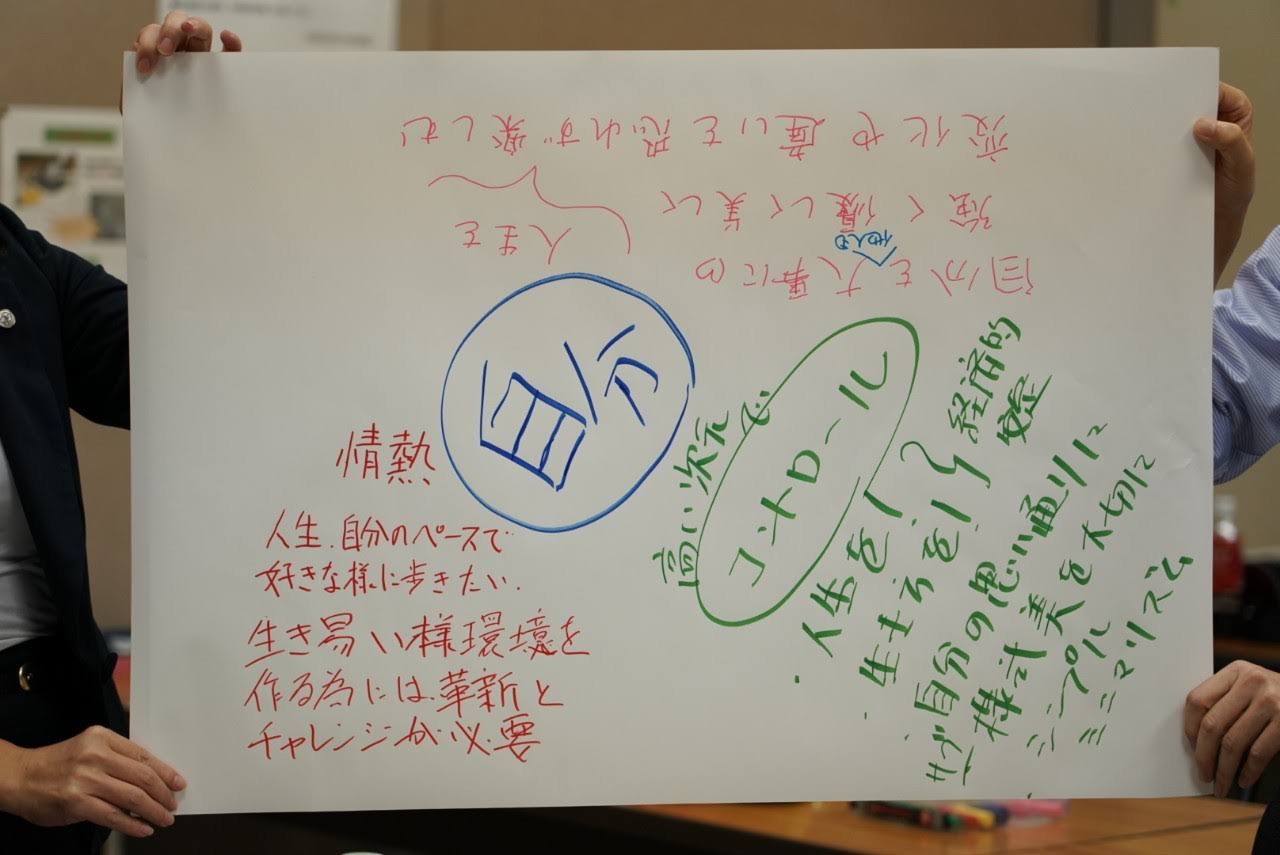 自分
自分を大事に♡
他人も
強く優しく美しく
人生を
変化や違いを恐れず楽しむ
情熱
人生.自分のペースで
好きな様に歩きたい.
生き易い様環境を
作る為には.革新と
チャレンジが必要
高い次元で
コントロール
・人生を
経済的
安定
自分の思い通りに
様式美を大切に
シンプル